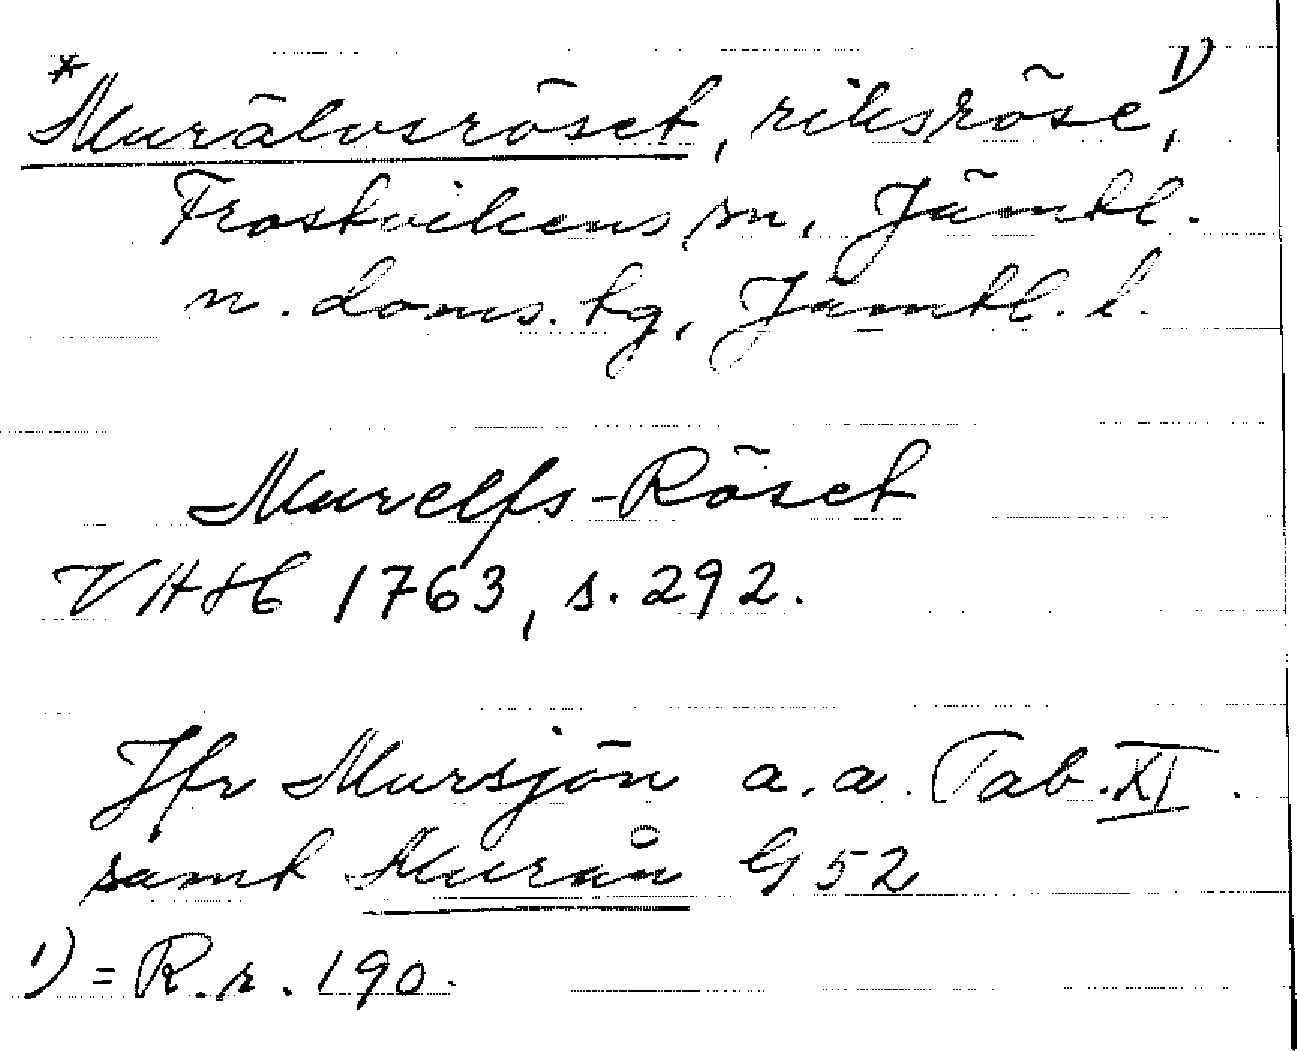 *Murälvsröset, riksröse, 1)
Frostvikens sn, Jämtl.
n. doms. tg, Jämtl. l.
Murelfs-Röset
VHAH 1763, s. 292.
Jfr Mursjön a.a. Tab. XI.
samt Murån G 52
1) = R.r. 190.